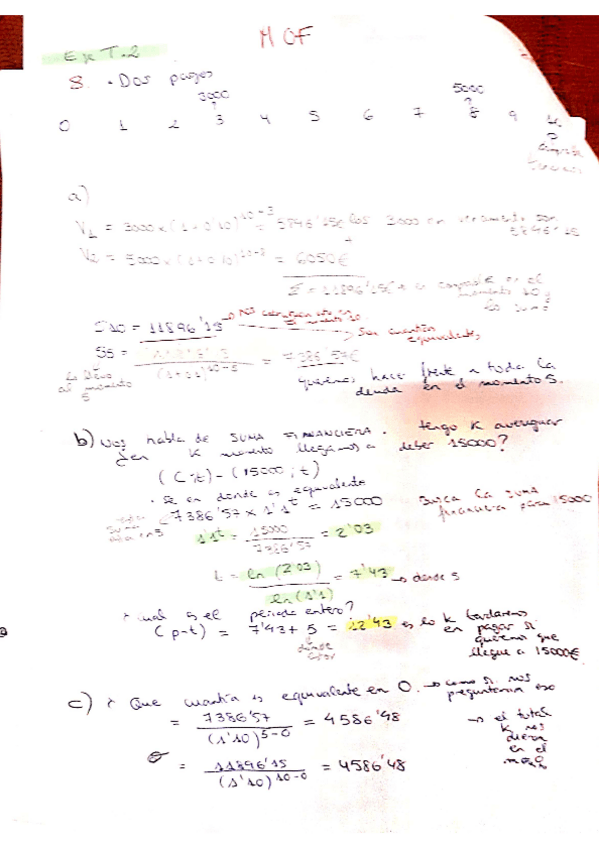 MOF
Eje T.2
8. • Dos pagos
3000 5000
0 1 2 3 4 5 6 7 8 9
a)
V1 = 3000 x (1+0'10)^10-3 = 5846'15€ los 3000 en son 5846'15
+
V2 = 5000 x (1+0'10)^10-8 = 6050€
Σ = 11896'15€ en el
momento 10 y
lo sumo
S10 = 11896'15 → No
→ Son cuantías
equivalentes
S5 = 11896'15 / (1'1)^10-5 = 7386'57€
lo llevo
al momento
5
queremos hacer frente a toda la
deuda en el momento 5.
b) Nos habla de SUMA FINANCIERA. tengo K averiguar
¿en K momento llegamos a deber 15000?
(C;t) - (15000; t)
• Se en donde es equivalente
7386'57 x 1'1^t = 15000 Busca la suma
financiera para 15000
1'1^t = 15000 / 7386'57 = 2'03
t = ln (2'03) / ln (1'1) = 7'43 → desde 5
cual es el periodo entero?
(p-t) = 7'43 + 5 = 12'43 es lo K tardaremos
en pagar si
queremos que
llegue a 15000€
donde
estoy
c) Que cuantía es equivalente en 0. → como si nos
preguntaran eso
= 7386'57 / (1'10)^5-0 = 4586'48 → el total
K nos
dieran
en el
= 11896'15 / (1'10)^10-0 = 4586'48